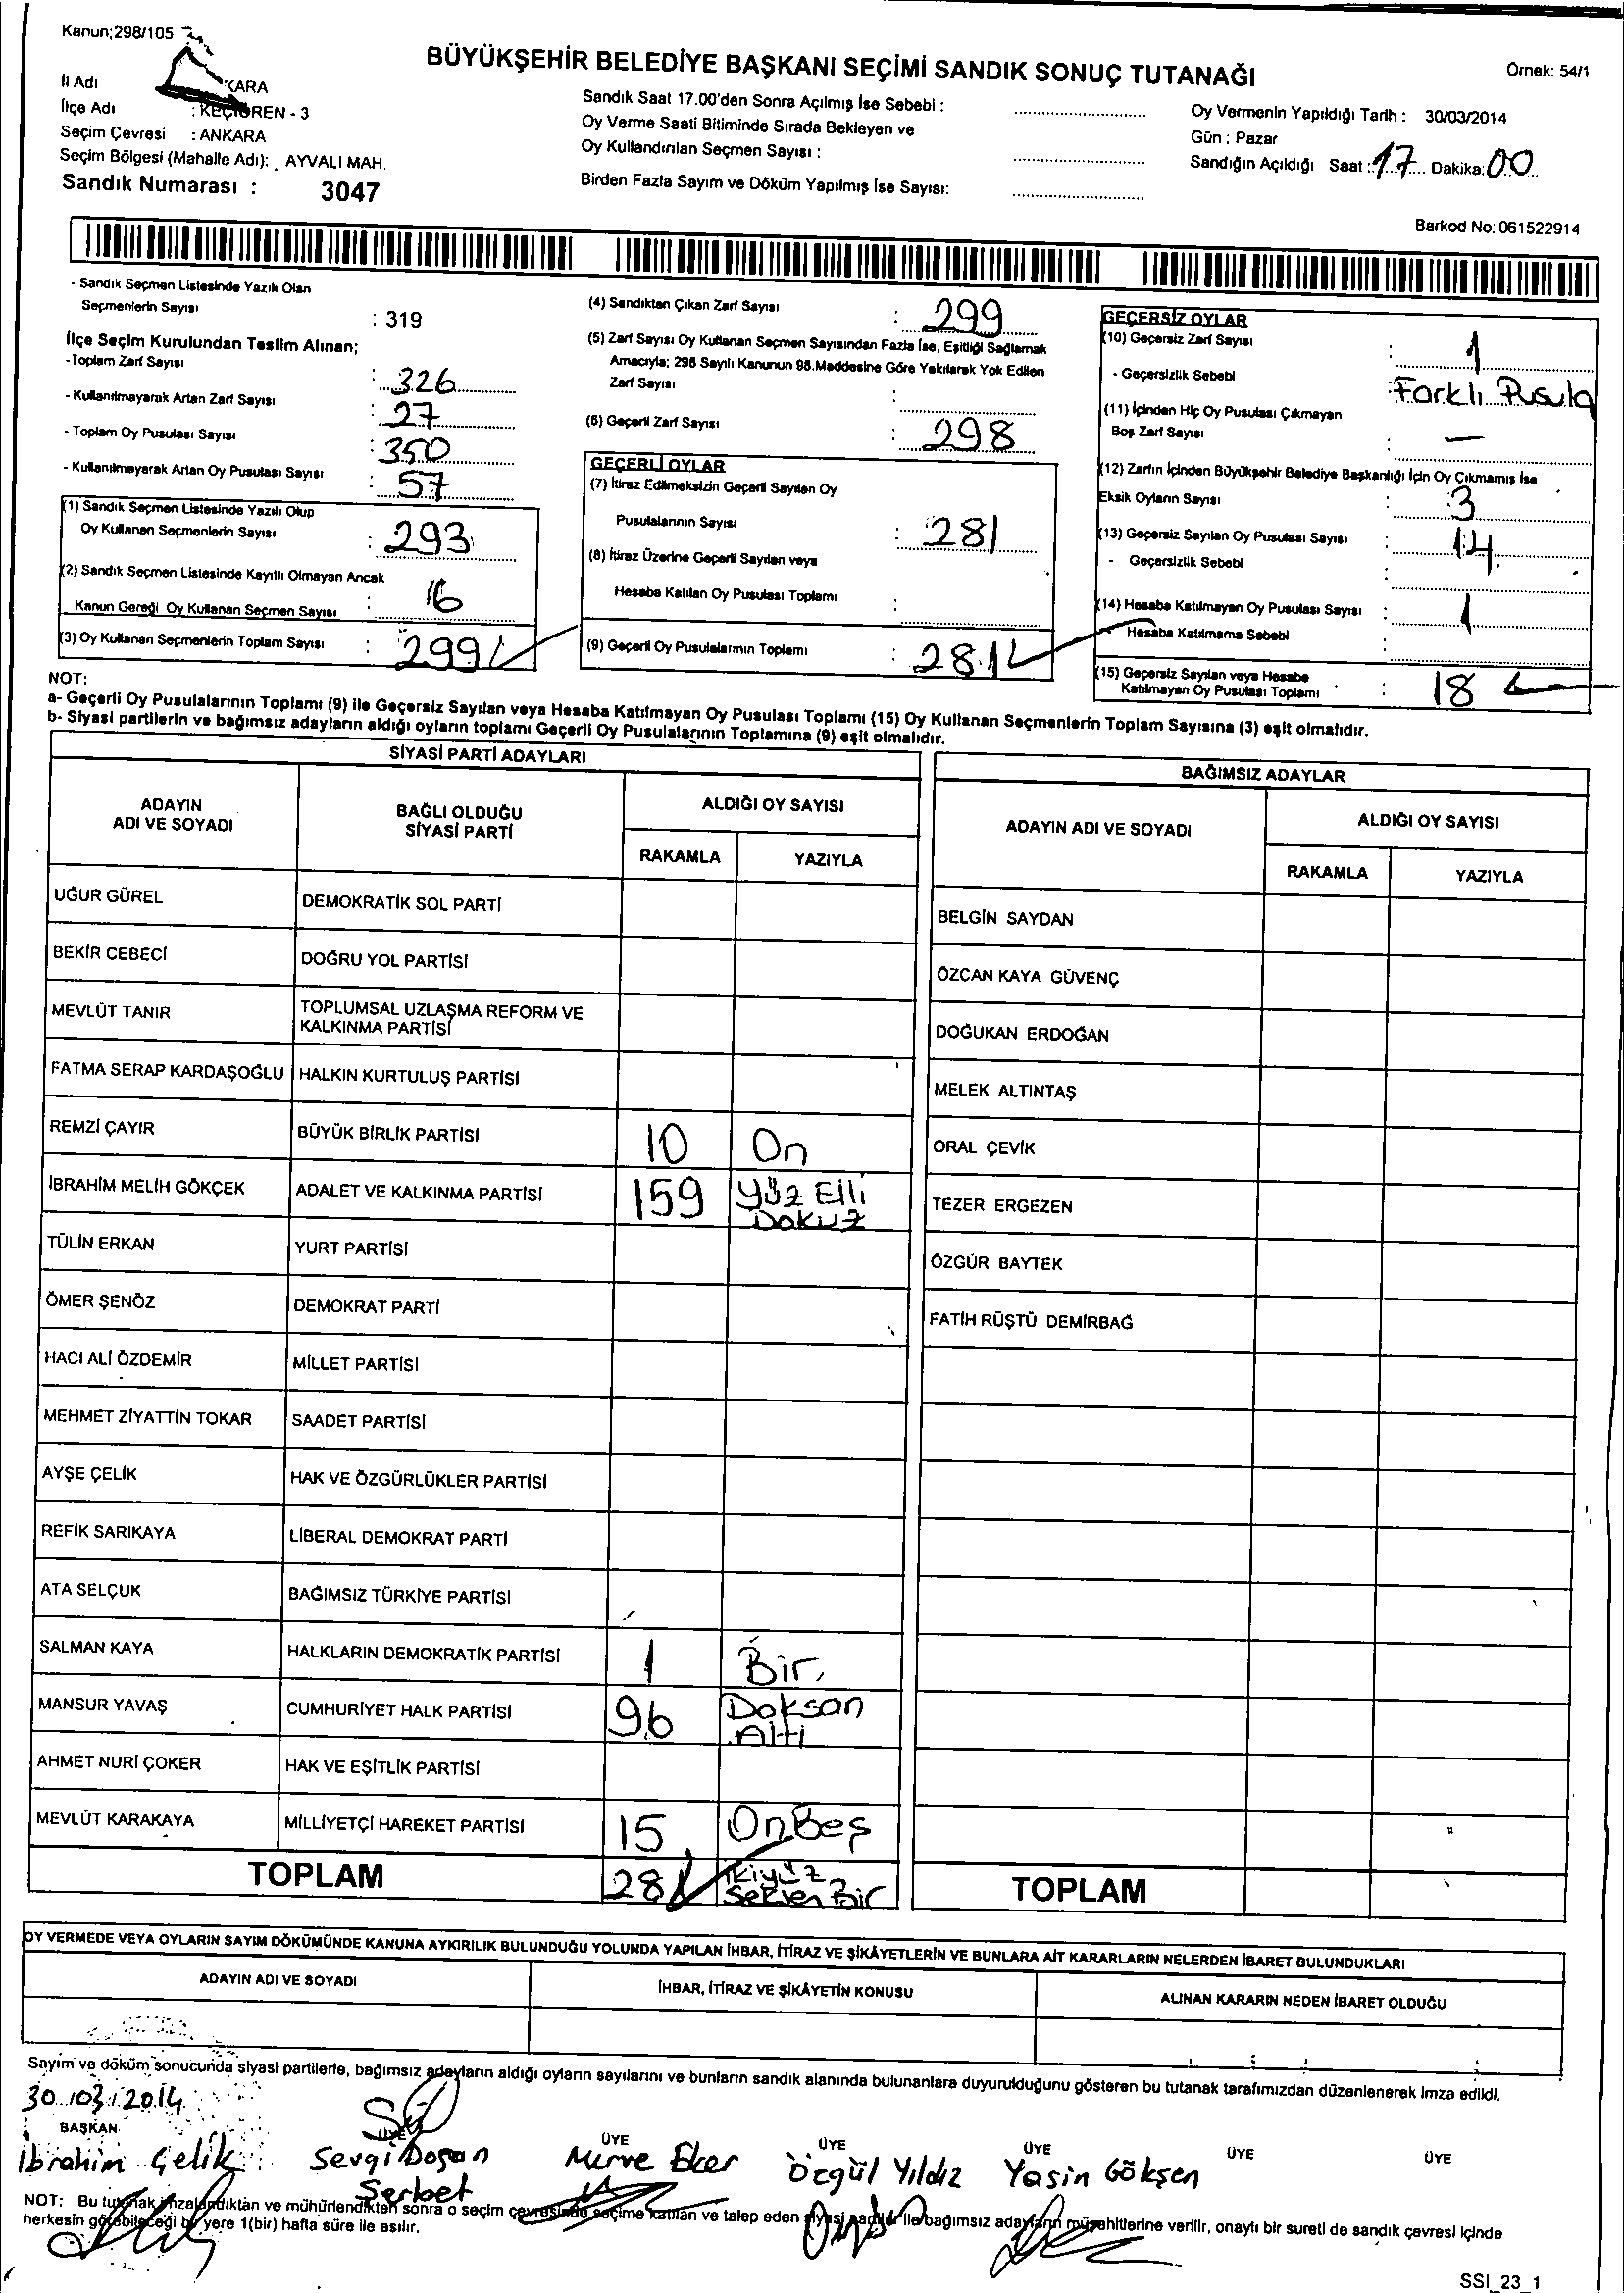 Kanun;298/105
BÜYÜKŞEHİR BELEDİYE BAŞKANI SEÇİMİ SANDIK SONUÇ TUTANAĞI
Örnek: 54/1
İl Adı KARA
İlçe Adı : KEÇİÖREN - 3
Seçim Çevresi : ANKARA
Seçim Bölgesi (Mahalle Adı): . AYVALI MAH.
Sandık Numarası : 3047
Sandık Saat 17.00'den Sonra Açılmış İse Sebebi :
Oy Verme Saati Bitiminde Sırada Bekleyen ve
Oy Kullandırılan Seçmen Sayısı :
Birden Fazla Sayım ve Döküm Yapılmış İse Sayısı:
Oy Vermenin Yapıldığı Tarih : 30/03/2014
Gün : Pazar
Sandığın Açıldığı Saat : 17 Dakika: 00
Barkod No: 061522914
- Sandık Seçmen Listesinde Yazılı Olan
Seçmenlerin Sayısı : 319
İlçe Seçim Kurulundan Teslim Alınan;
-Toplam Zarf Sayısı : 326
- Kullanılmayarak Artan Zarf Sayısı : 27
- Toplam Oy Pusulası Sayısı : 350
- Kullanılmayarak Artan Oy Pusulası Sayısı : 57
(1) Sandık Seçmen Listesinde Yazılı Olup
Oy Kullanan Seçmenlerin Sayısı : 293
(2) Sandık Seçmen Listesinde Kayıtlı Olmayan Ancak
Kanun Gereği Oy Kullanan Seçmen Sayısı : 16
(3) Oy Kullanan Seçmenlerin Toplam Sayısı : 299
(4) Sandıktan Çıkan Zarf Sayısı : 299
(5) Zarf Sayısı Oy Kullanan Seçmen Sayısından Fazla İse, Eşitliği Sağlamak
Amacıyla; 298 Sayılı Kanunun 98.Maddesine Göre Yakılarak Yok Edilen
Zarf Sayısı :
(6) Geçerli Zarf Sayısı : 298
GEÇERLİ OYLAR
(7) İtiraz Edilmeksizin Geçerli Sayılan Oy
Pusulalarının Sayısı : 281
(8) İtiraz Üzerine Geçerli Sayılan veya
Hesaba Katılan Oy Pusulası Toplamı :
(9) Geçerli Oy Pusulalarının Toplamı : 281
GEÇERSİZ OYLAR
(10) Geçersiz Zarf Sayısı : 1
- Geçersizlik Sebebi : Farklı Pusula
(11) İçinden Hiç Oy Pusulası Çıkmayan
Boş Zarf Sayısı : —
(12) Zarfın İçinden Büyükşehir Belediye Başkanlığı İçin Oy Çıkmamış İse
Eksik Oyların Sayısı : 3
(13) Geçersiz Sayılan Oy Pusulası Sayısı : 14
- Geçersizlik Sebebi :
(14) Hesaba Katılmayan Oy Pusulası Sayısı : 1
- Hesaba Katılmama Sebebi :
(15) Geçersiz Sayılan veya Hesaba
Katılmayan Oy Pusulası Toplamı : 18
NOT:
a- Geçerli Oy Pusulalarının Toplamı (9) ile Geçersiz Sayılan veya Hesaba Katılmayan Oy Pusulası Toplamı (15) Oy Kullanan Seçmenlerin Toplam Sayısına (3) eşit olmalıdır.
b- Siyasi partilerin ve bağımsız adayların aldığı oyların toplamı Geçerli Oy Pusulalarının Toplamına (9) eşit olmalıdır.
SİYASİ PARTİ ADAYLARI
ADAYIN ADI VE SOYADI
BAĞLI OLDUĞU SİYASİ PARTİ
ALDIĞI OY SAYISI
RAKAMLA YAZIYLA
UĞUR GÜREL DEMOKRATİK SOL PARTİ
BEKİR CEBECİ DOĞRU YOL PARTİSİ
MEVLÜT TANIR TOPLUMSAL UZLAŞMA REFORM VE
KALKINMA PARTİSİ
FATMA SERAP KARDAŞOĞLU HALKIN KURTULUŞ PARTİSİ
REMZİ ÇAYIR BÜYÜK BİRLİK PARTİSİ 10 On
İBRAHİM MELİH GÖKÇEK ADALET VE KALKINMA PARTİSİ 159 Yüz Elli
Dokuz
TÜLİN ERKAN YURT PARTİSİ
ÖMER ŞENÖZ DEMOKRAT PARTİ
HACI ALİ ÖZDEMİR MİLLET PARTİSİ
MEHMET ZİYATTİN TOKAR SAADET PARTİSİ
AYŞE ÇELİK HAK VE ÖZGÜRLÜKLER PARTİSİ
REFİK SARIKAYA LİBERAL DEMOKRAT PARTİ
ATA SELÇUK BAĞIMSIZ TÜRKİYE PARTİSİ
SALMAN KAYA HALKLARIN DEMOKRATİK PARTİSİ 1 Bir
MANSUR YAVAŞ CUMHURİYET HALK PARTİSİ 96 Doksan
Altı
AHMET NURİ ÇOKER HAK VE EŞİTLİK PARTİSİ
MEVLÜT KARAKAYA MİLLİYETÇİ HAREKET PARTİSİ 15 OnBeş
TOPLAM 281 İkiyüz
Seksen Bir
BAĞIMSIZ ADAYLAR
ADAYIN ADI VE SOYADI
ALDIĞI OY SAYISI
RAKAMLA YAZIYLA
BELGİN SAYDAN
ÖZCAN KAYA GÜVENÇ
DOĞUKAN ERDOĞAN
MELEK ALTINTAŞ
ORAL ÇEVİK
TEZER ERGEZEN
ÖZGÜR BAYTEK
FATİH RÜŞTÜ DEMİRBAĞ
TOPLAM
OY VERMEDE VEYA OYLARIN SAYIM DÖKÜMÜNDE KANUNA AYKIRILIK BULUNDUĞU YOLUNDA YAPILAN İHBAR, İTİRAZ VE ŞİKÂYETLERİN VE BUNLARA AİT KARARLARIN NELERDEN İBARET BULUNDUKLARI
ADAYIN ADI VE SOYADI
İHBAR, İTİRAZ VE ŞİKÂYETİN KONUSU
ALINAN KARARIN NEDEN İBARET OLDUĞU
Sayım ve döküm sonucunda siyasi partilerle, bağımsız adayların aldığı oyların sayılarını ve bunların sandık alanında bulunanlara duyurulduğunu gösteren bu tutanak tarafımızdan düzenlenerek imza edildi.
30.03.2014
BAŞKAN ÜYE ÜYE ÜYE ÜYE ÜYE ÜYE
İbrahim Çelik Sevgi Doğan Merve Eker Özgül Yıldız Yasin Gökşen
Serbet
NOT: Bu tutanak imzalandıktan ve mühürlendikten sonra o seçim çevresinde seçime katılan ve talep eden siyasi partiler ile bağımsız adayların müşahitlerine verilir, onaylı bir sureti de sandık çevresi içinde
herkesin görebileceği bir yere 1(bir) hafta süre ile asılır.
SSI_23_1